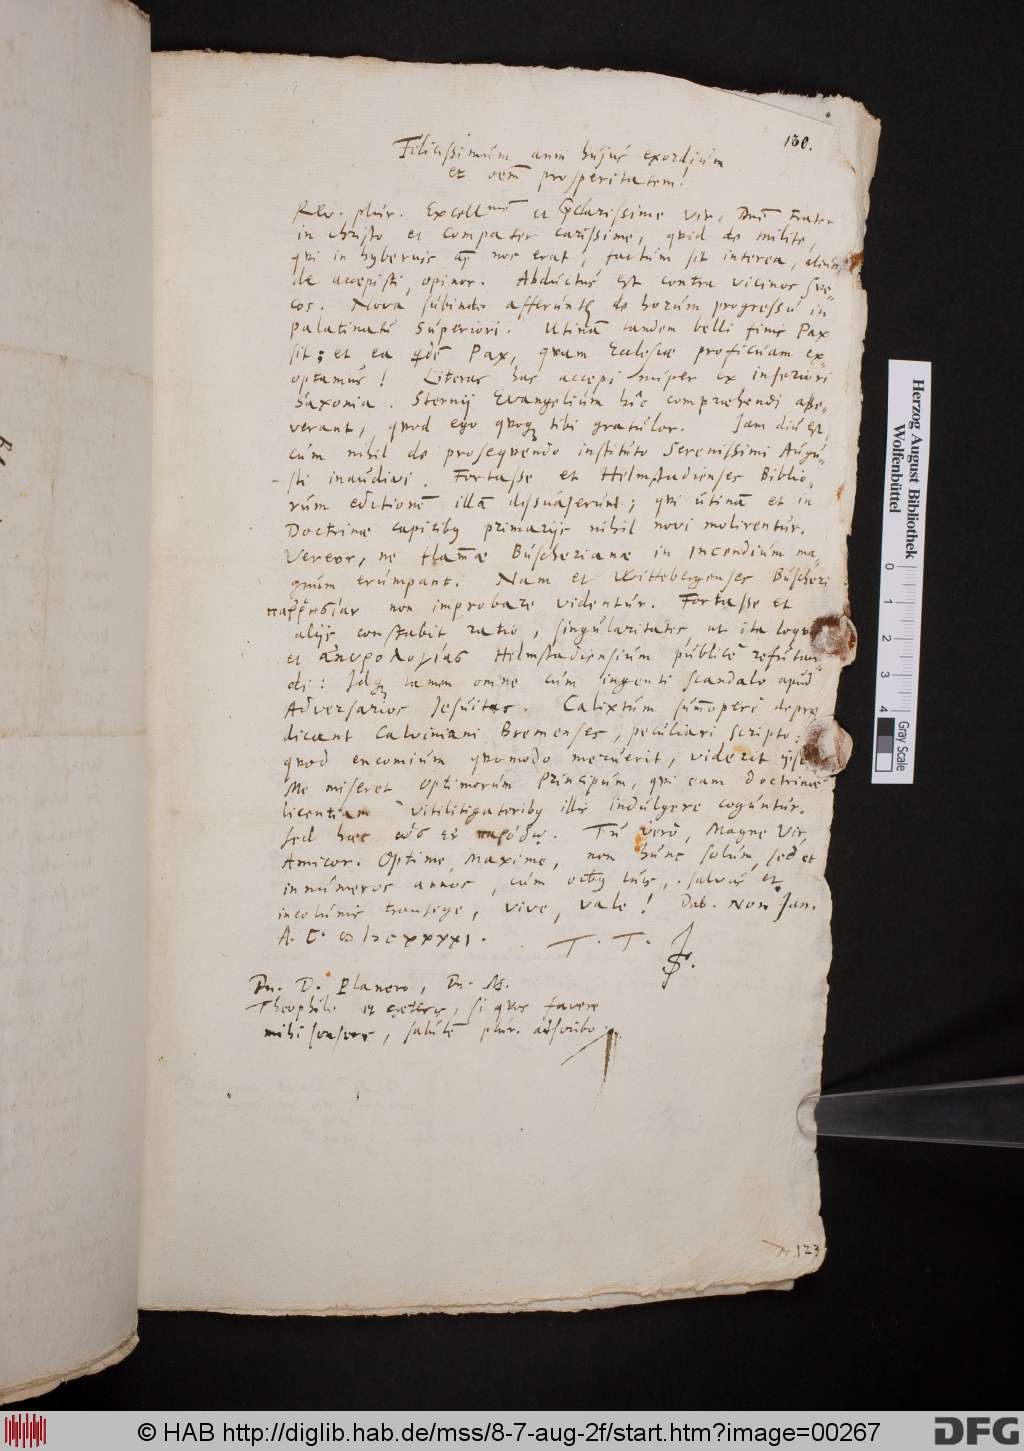 130.
Felicissimum anni hujus exordium
et oem̃ prosperitatem!
Rev. plur. Excell^me et Clarissime vir, Dne Frater
in Christo et Compater carissime, quid de milite,
qui in hybernis ap. nos erat, factum sit interea, aliun
de accepisti, opinor. Abductus est contra vicinos Sve„
cos. Nova subinde afferunt de horum progressu in
palatinatu Superiori. Utinam tandem belli finis Pax
sit; et ea qdem Pax, quam Ecclesiae proficuam ex„
optamus! Literas has accepi nuper ex inferiori
Saxonia. Sternij Evangelium hic comprehendi asse„
verant, quod ego quoq tibi gratulor. Jam diu est,
cum nihil de prosequendo instituto Serenissimi Augu„
sti inaudivi. Fortasse et Helmstadienses Biblio„
rum editionem illā dissuaserunt; qui utinam et in
Doctrinae capitiby primarijs nihil novi molirentur.
Vereor, ne flamae Büscherianae in incendium ma„
gnum erumpant. Nam et Wittebergenses Büscheri
παῤῥησίαν non improbare videntur. Fortasse et
alijs constabit ratio, singularitates, ut ita loqu
et ἀκυρολογίας Helmstadiensium publicè refutan„
di: Idq tamen omne cum ingenti scandalo apud
Adversarios Jesuitas. Calixtum sum̄opere depre
dicant Calviniani Bremenses, peculiari scripto:
quod encomium quomodo meruerit, viderit ipse.
Me miseret Optimorum Principum, qui eam doctrinae
licentiam vitilitigatoriby illis indulgere coguntur.
Sed haec ὡς ἐν παρόδῳ. Tu verò, Magne Vir,
Amicor. Optime, Maxime, non hunc solum, sed et
innumeros annos, cum oĩby tuis, salvus et
incolumis transege, vive, vale! Dab. Non Jan.
A. C. ↀ IↃCXXXXI.
T. T. JS.
Dn. D. Planero, Dn. M.
Theophilo et ceteris, si quos favere
mihi senseris, salutē plur. adscribo
123
Herzog August Bibliothek
Wolfenbüttel
0 1 2 3 4
Gray Scale
© HAB http://diglib.hab.de/mss/8-7-aug-2f/start.htm?image=00267
DFG